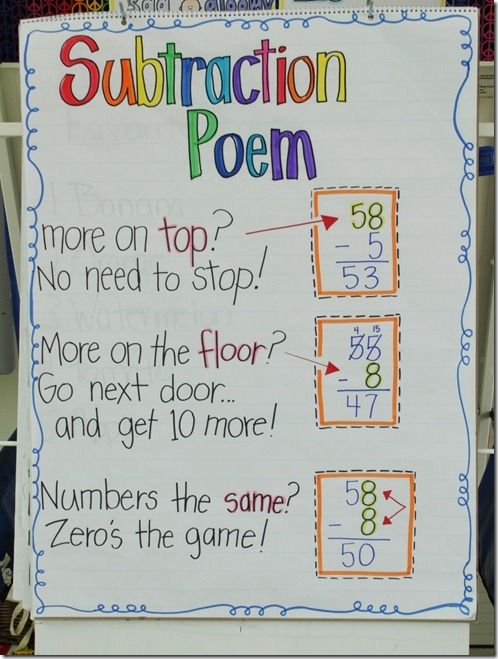 Subtraction
Poem
more on top?
No need to stop!
58
- 5
53
More on the floor?
Go next door...
and get 10 more!
4 15
55
- 8
47
Numbers the same?
Zero's the game!
58
- 8
50